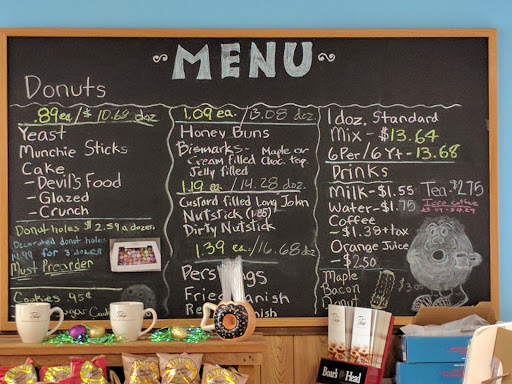 MENU
Donuts
.89 ea./$10.68 doz
Yeast
Munchie Sticks
Cake
-Devil's Food
-Glazed
-Crunch
Donut holes $2.59 a dozen
Decorated donut holes
for 2 dozen
Must Preorder
Cookies 95¢
Sugar
1.09 ea. /13.08 doz.
Honey Buns
Bismarks- Maple or
Cream filled Choc. top
Jelly filled
1.19 ea. /14.28 doz.
Custard filled Long John
Nutstick (1.85)
Dirty Nutstick
1.39 ea. /16.68 doz
Pers
Fried
1 doz. Standard
Mix - $13.64
6 Per/6 Yt - 13.68
Drinks
Milk-$1.55
Tea $2.75
Water-$1.75
Iced Coffee
Coffee
-$1.39+tax
Orange Juice
-$2.50
Maple
Bacon
Donut
Boar's Head